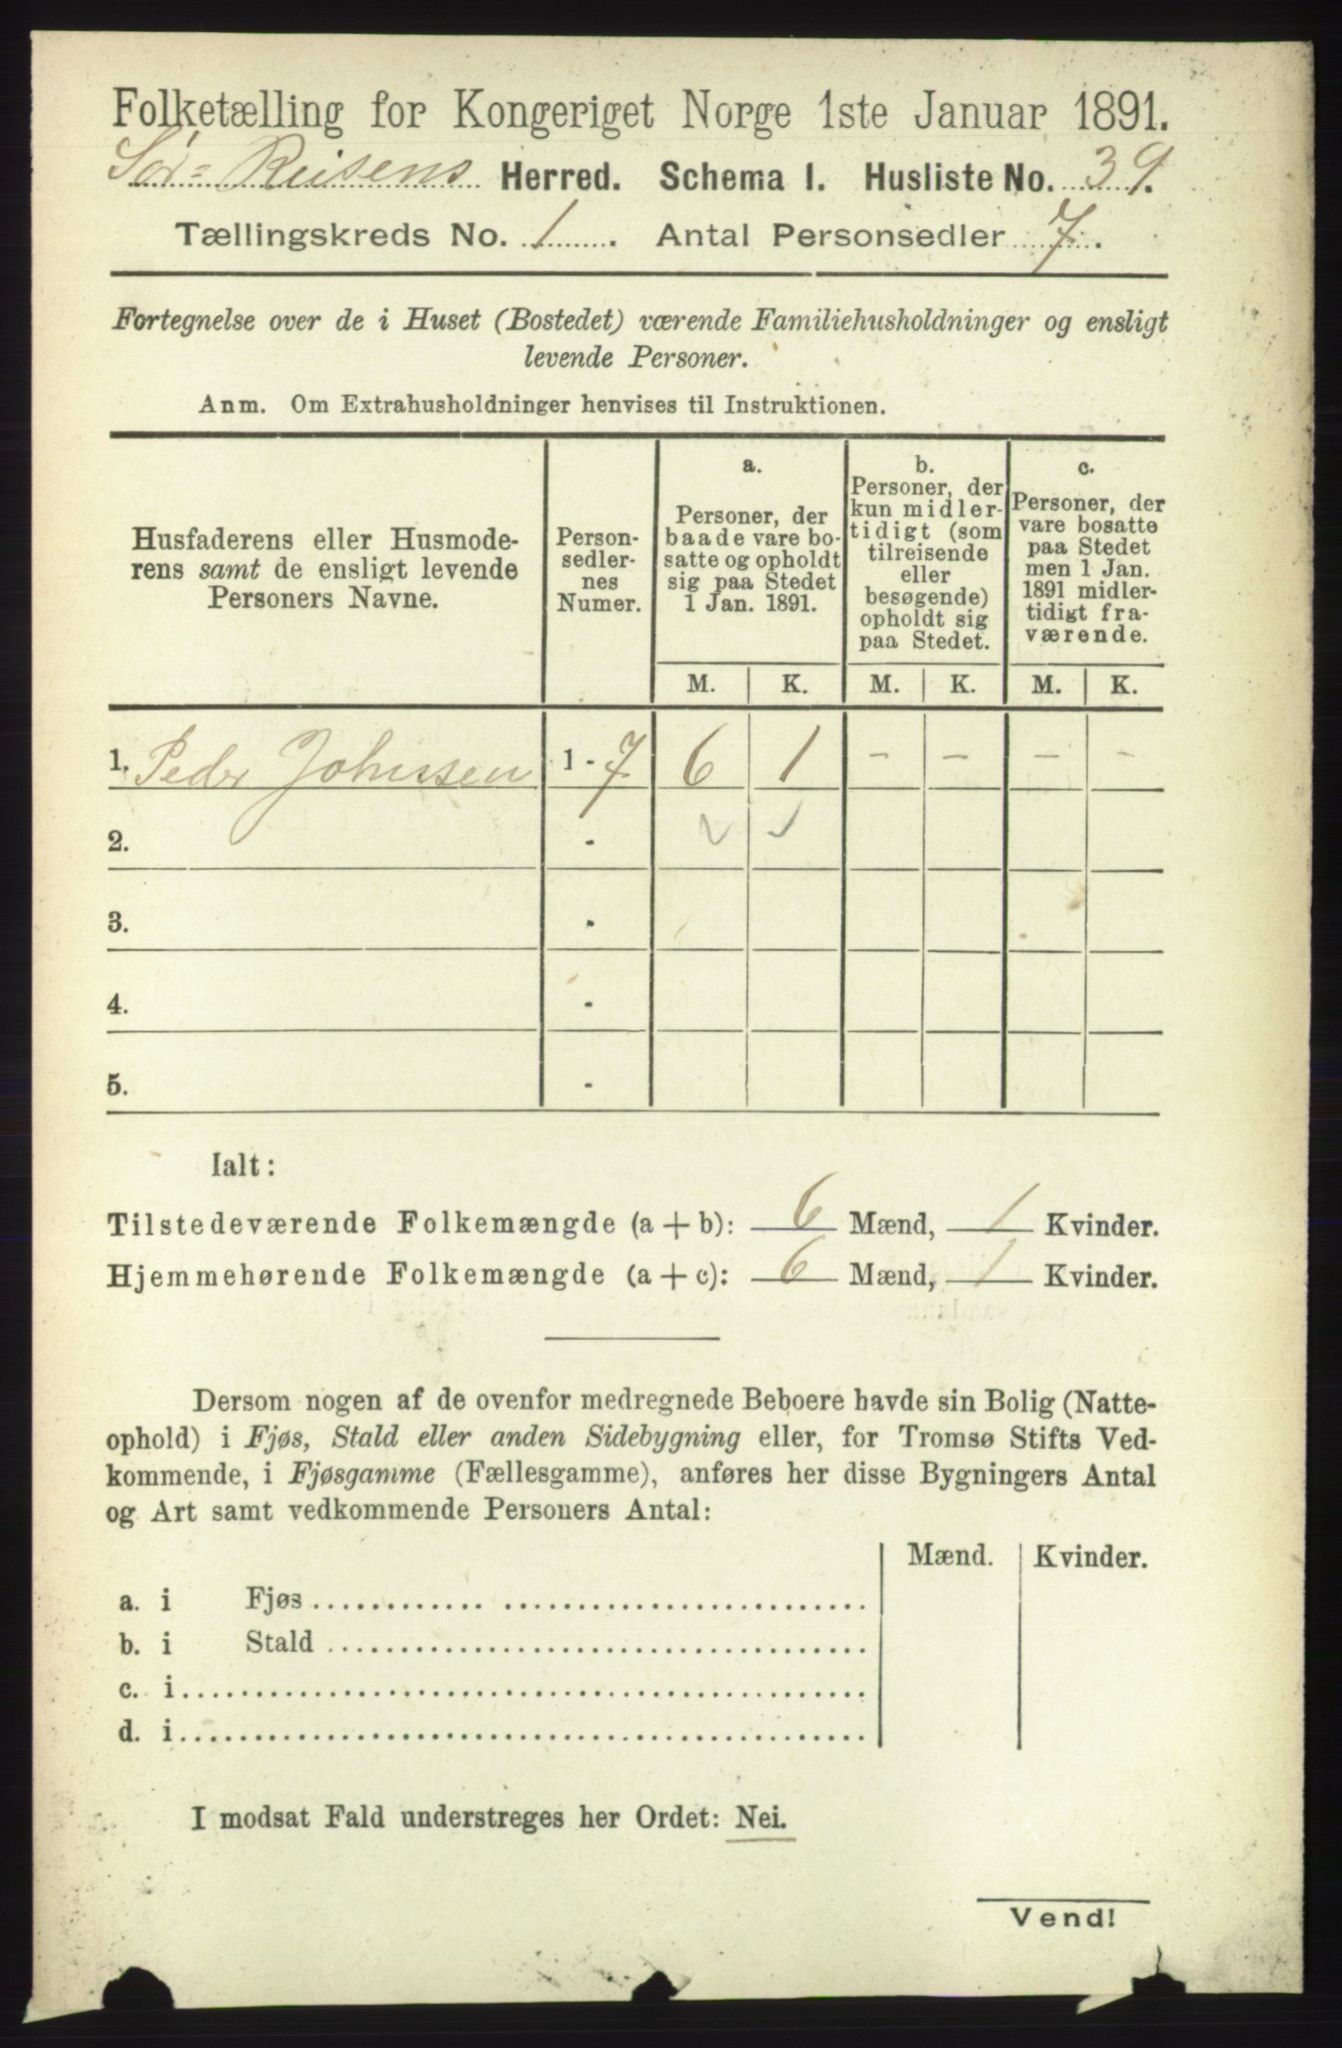 Folketælling for Kongeriget Norge 1ste Januar 1891.
Sör-Reisens Herred. Schema I. Husliste No. 39.
Tællingskreds No. 1. Antal Personsedler 7.
Fortegnelse over de i Huset (Bostedet) værende Familiehusholdninger og ensligt
levende Personer.
Anm. Om Extrahusholdninger henvises til Instruktionen.
Husfaderens eller Husmode-
rens samt de ensligt levende
Personers Navne.
Person-
sedler-
nes
Numer.
a.
Personer, der
baade vare bo-
satte og opholdt
sig paa Stedet
1 Jan. 1891.
b.
Personer, der
kun midler-
tidigt (som
tilreisende
eller
besøgende)
opholdt sig
paa Stedet.
c.
Personer, der
vare bosatte
paa Stedet
men 1 Jan.
1891 midler-
tidigt fra-
værende.
M. K. M. K. M. K.
1. Peder Johnssen 1 - 7 6 1 - - - -
2. -
3. -
4. -
5. -
Ialt:
Tilstedeværende Folkemængde (a + b): 6 Mænd, 1 Kvinder.
Hjemmehørende Folkemængde (a + c): 6 Mænd, 1 Kvinder.
Dersom nogen af de ovenfor medregnede Beboere havde sin Bolig (Natte-
ophold) i Fjøs, Stald eller anden Sidebygning eller, for Tromsø Stifts Ved-
kommende, i Fjøsgamme (Fællesgamme), anføres her disse Bygningers Antal
og Art samt vedkommende Personers Antal:
Mænd. Kvinder.
a. i Fjøs
b. i Stald
c. i
d. i
I modsat Fald understreges her Ordet: Nei.
Vend!